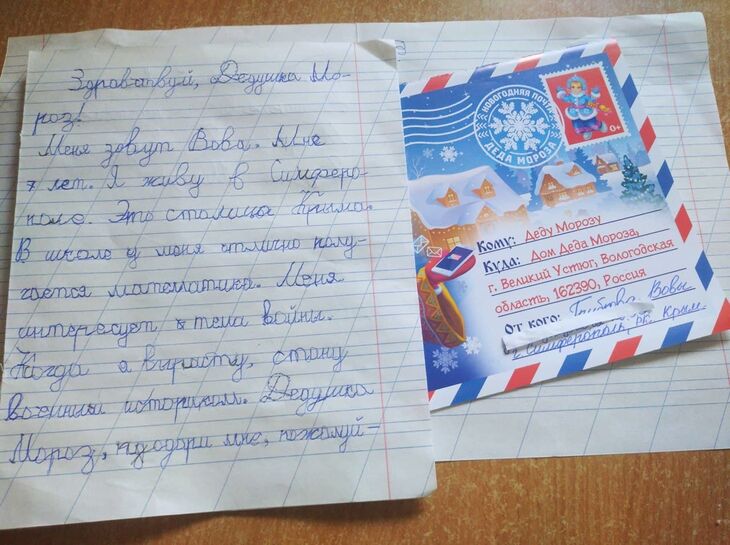 Здравствуй, Дедушка Мо-
роз!
Меня зовут Вова. Мне
7 лет. Я живу в Симферо-
поле. Это столица Крыма.
В школе у меня отлично полу-
чается математика. Меня
интересует тема войны.
Когда я вырасту, стану
военным историком. Дедушка
Мороз, подари мне, пожалуй-
НОВОГОДНЯЯ ПОЧТА
ДЕДА МОРОЗА
0+
Кому: Деду Морозу
Куда: Дом Деда Мороза,
г. Великий Устюг, Вологодская
область, 162390, Россия
От кого: Вовы
г. Симферополь, рк. Крым.